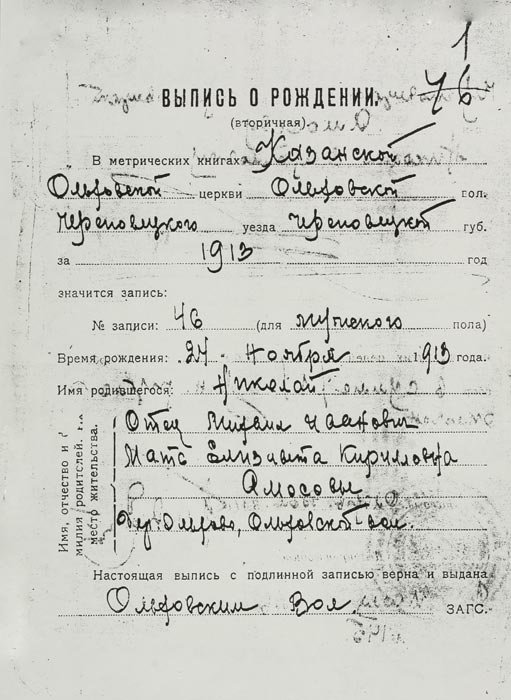 1
ВЫПИСЬ О РОЖДЕНИИ. 46
(вторичная)
В метрических книгах Казанской
Ольховской церкви Ольховской вол.
Череповецкого уезда Череповецкой губ.
за 1913 год
значится запись:
№ записи: 46 (для мужского пола)
Время рождения: 27 ноября 1913 года.
Имя родившегося: Николай
Имя, отчество и
милия родителей.
место жительства.
Отец Михаил Иванович
Мать Елизавета Кирилловна
Амосовы
Дер. Ольхово, Ольховской вол.
Настоящая выпись с подлинной записью верна и выдана
Ольховским Вол ЗАГС.-